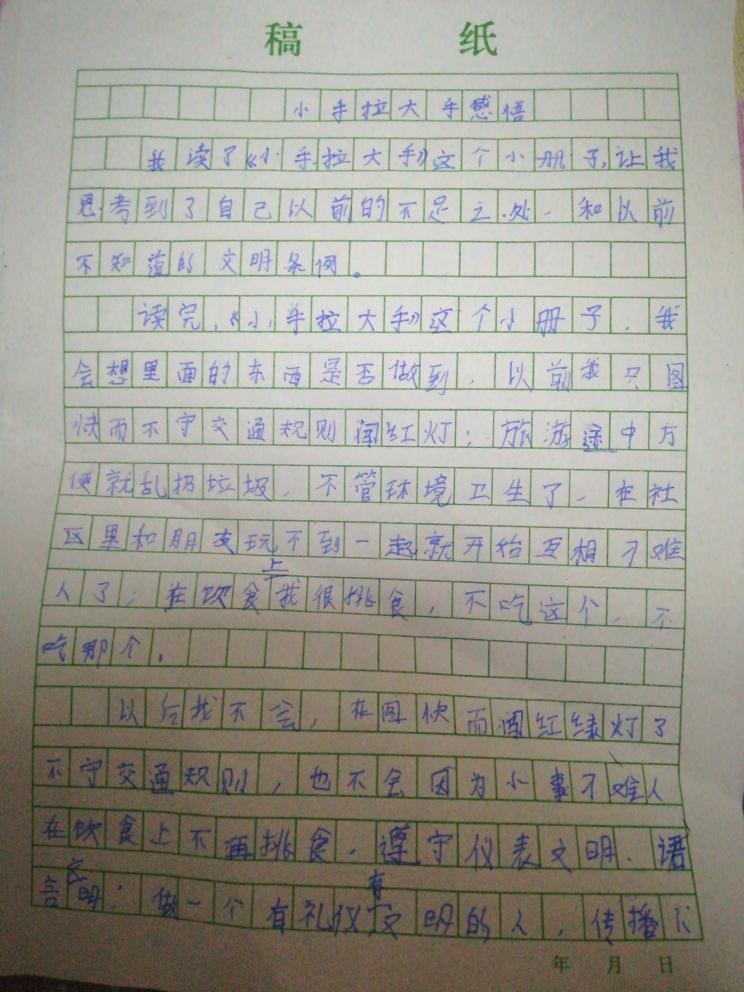 稿 纸
小手拉大手感悟
我读了《小手拉大手》这个小册子,让我
思考到了自己以前的不足之处、和以前
不知道的文明条例。
读完,《小手拉大手》这个小册子,我
会想里面的东西是否做到,以前我只图
快而不守交通规则闯红灯;旅游途中方
便就乱扔垃圾,不管环境卫生了,在社
区里和朋友玩不到一起就开始互相刁难
人了;在饮食上我很挑食,不吃这个,不
吃那个。
以后我不会,在图快而闯红绿灯了
不守交通规则,也不会因为小事刁难人
在饮食上不再挑食,遵守仪表文明、语
言文明;做一个有礼仪有文明的人,传播
年 月 日